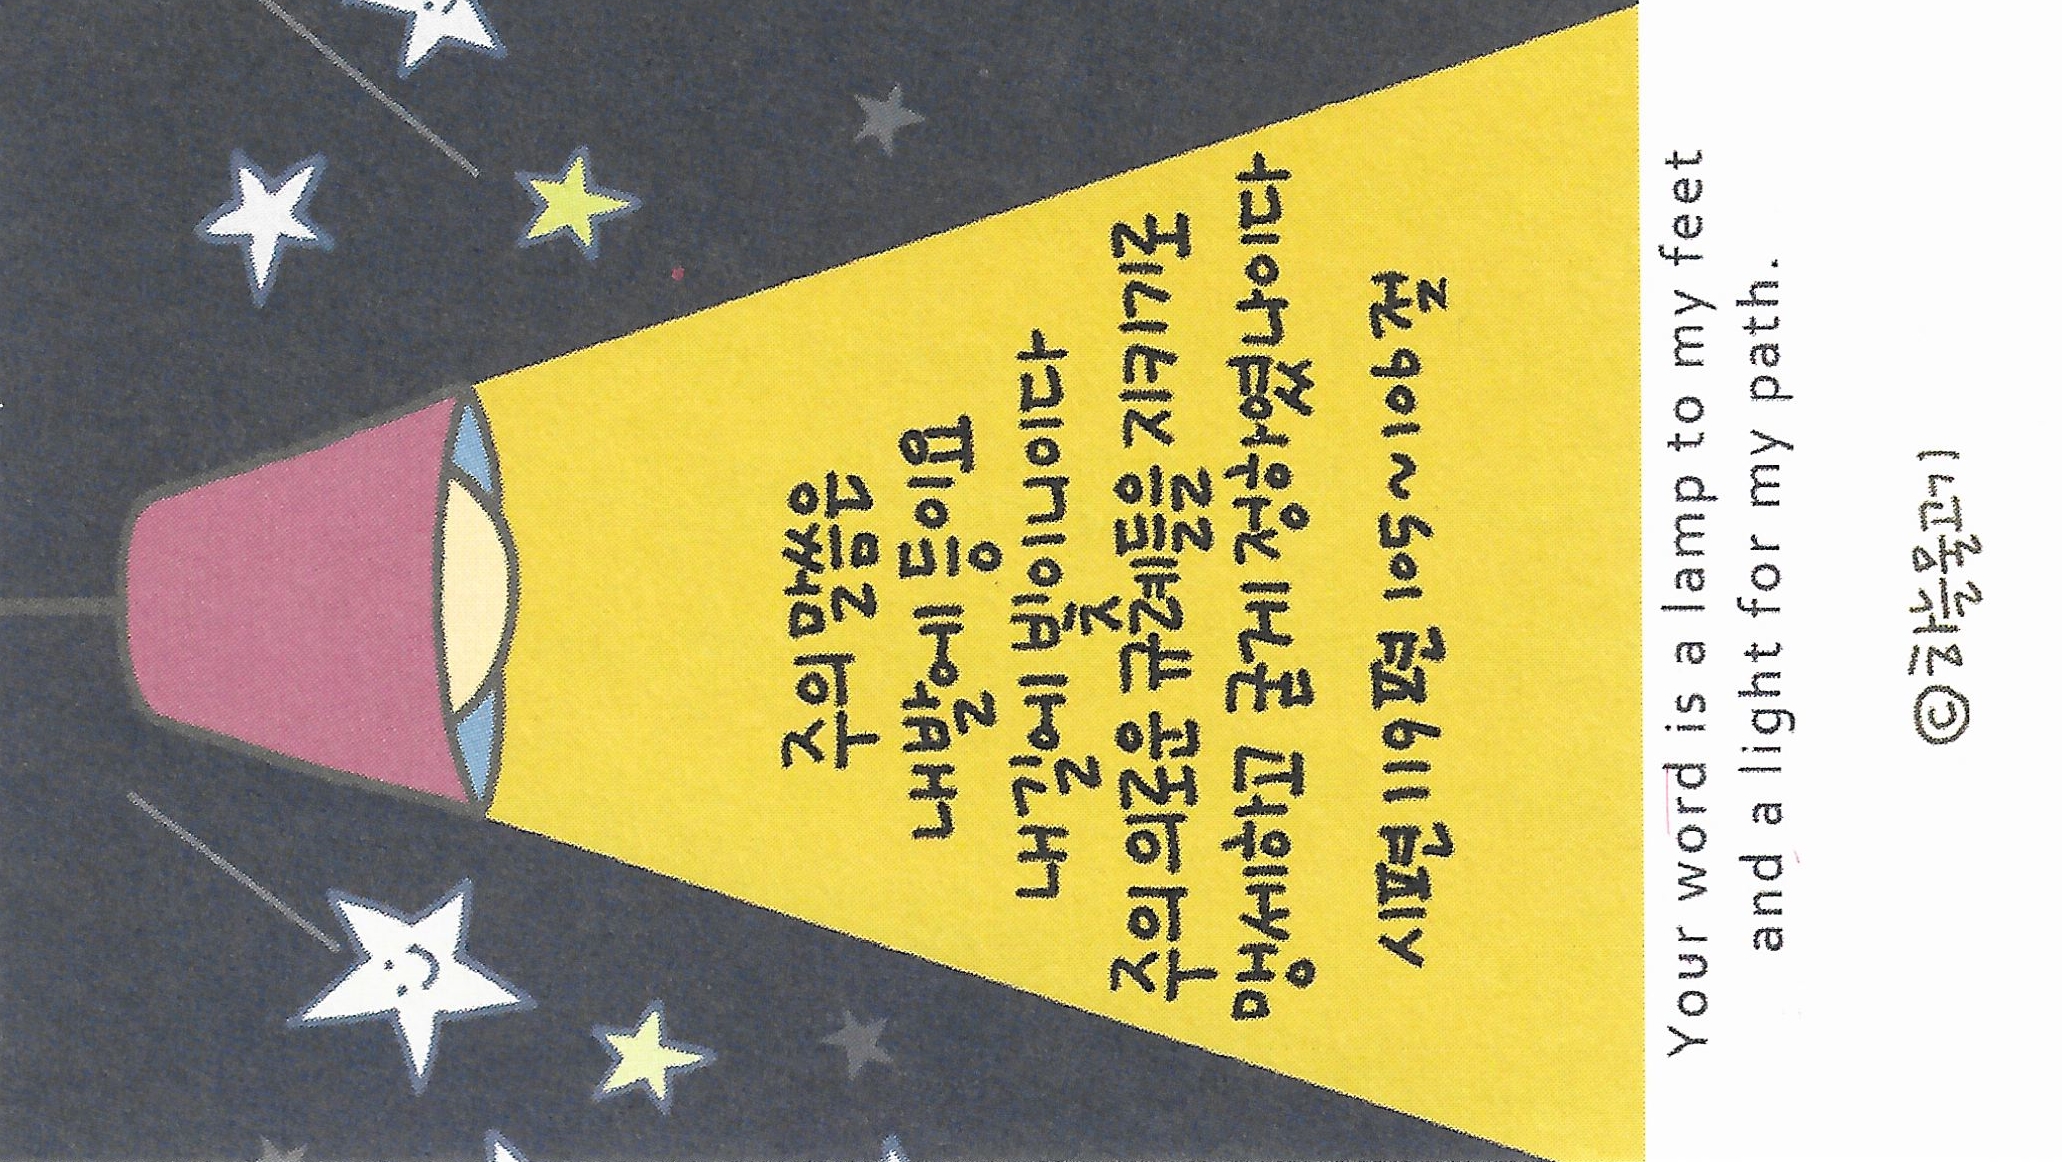 주의 말씀은
내 발에 등이요
내 길에 빛이니이다
주의 의로운 규례들을 지키기로
맹세하고 굳게 정하였나이다
시편 119편 105~106절
Your word is a lamp to my feet
and a light for my path.
©하늘물고기